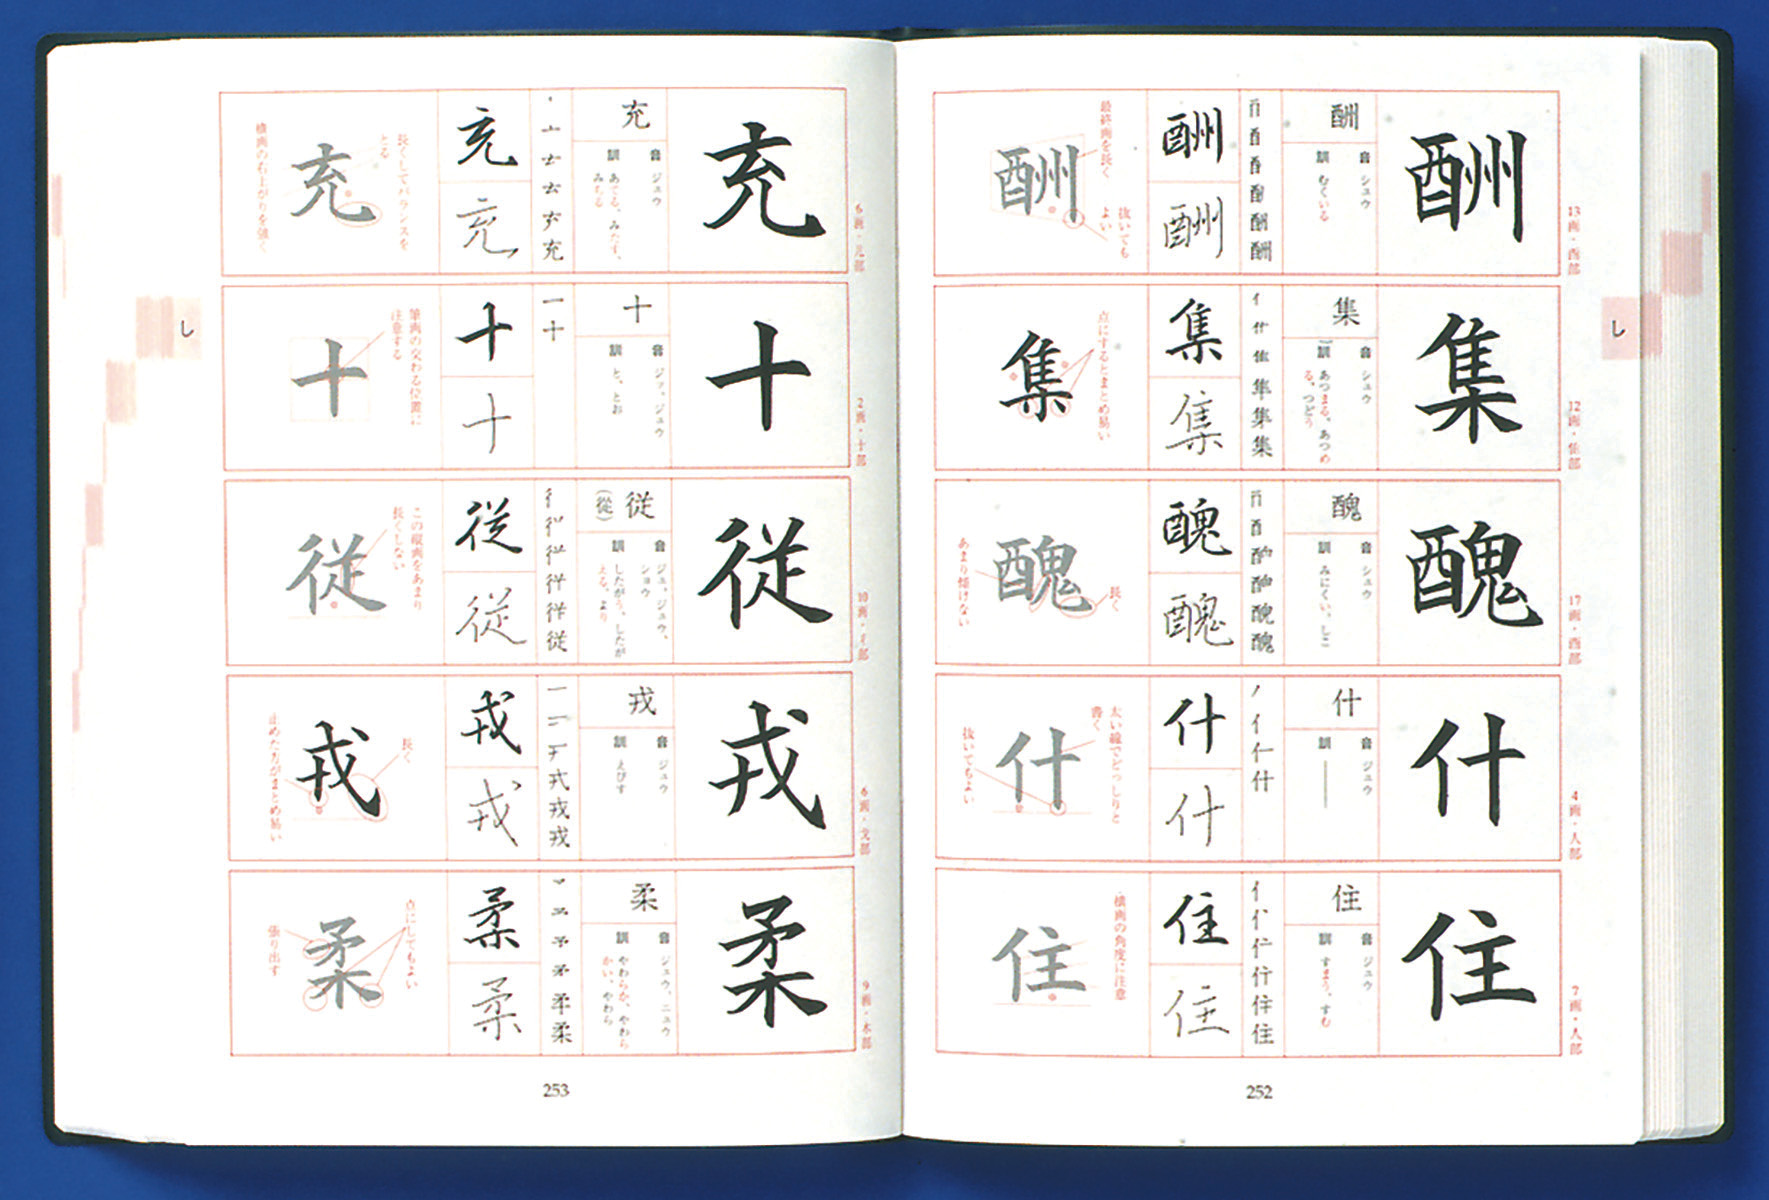 し
13画・酉部
酬
酬
音 シュウ
訓 むくいる
酬
酬
酬
最終画を長く
抜いても
よい
12画・隹部
集
集
音 シュウ
訓 あつまる、あつめ
る、つどう
集
集
集
点にするとまとめ易い
17画・酉部
醜
醜
音 シュウ
訓 みにくい、しこ
醜
醜
醜
長く
あまり傾けない
4画・人部
什
什
音 ジュウ
訓 ―
什
什
什
太い線でどっしりと
書く
抜いてもよい
7画・人部
住
住
音 ジュウ
訓 すまう、すむ
住
住
住
横画の角度に注意
252
6画・儿部
充
充
音 ジュウ
訓 あてる、みたす、
みちる
充
充
充
長くしてバランスを
とる
横画の右上がりを強く
2画・十部
十
十
音 ジッ、ジュウ
訓 と、とお
一十
十
十
十
筆画の交わる位置に
注意する
10画・彳部
従
従
(從)
音 ジュ、ジュウ、
ショウ
訓 したがう、したが
える、より
従
従
従
この縦画をあまり
長くしない
6画・戈部
戎
戎
音 ジュウ
訓 えびす
戎
戎
戎
長く
止めた方がまとめ易い
9画・木部
柔
柔
音 ジュウ、ニュウ
訓 やわらか、やわら
かい、やわら
柔
柔
柔
点にしてもよい
張り出す
253
し